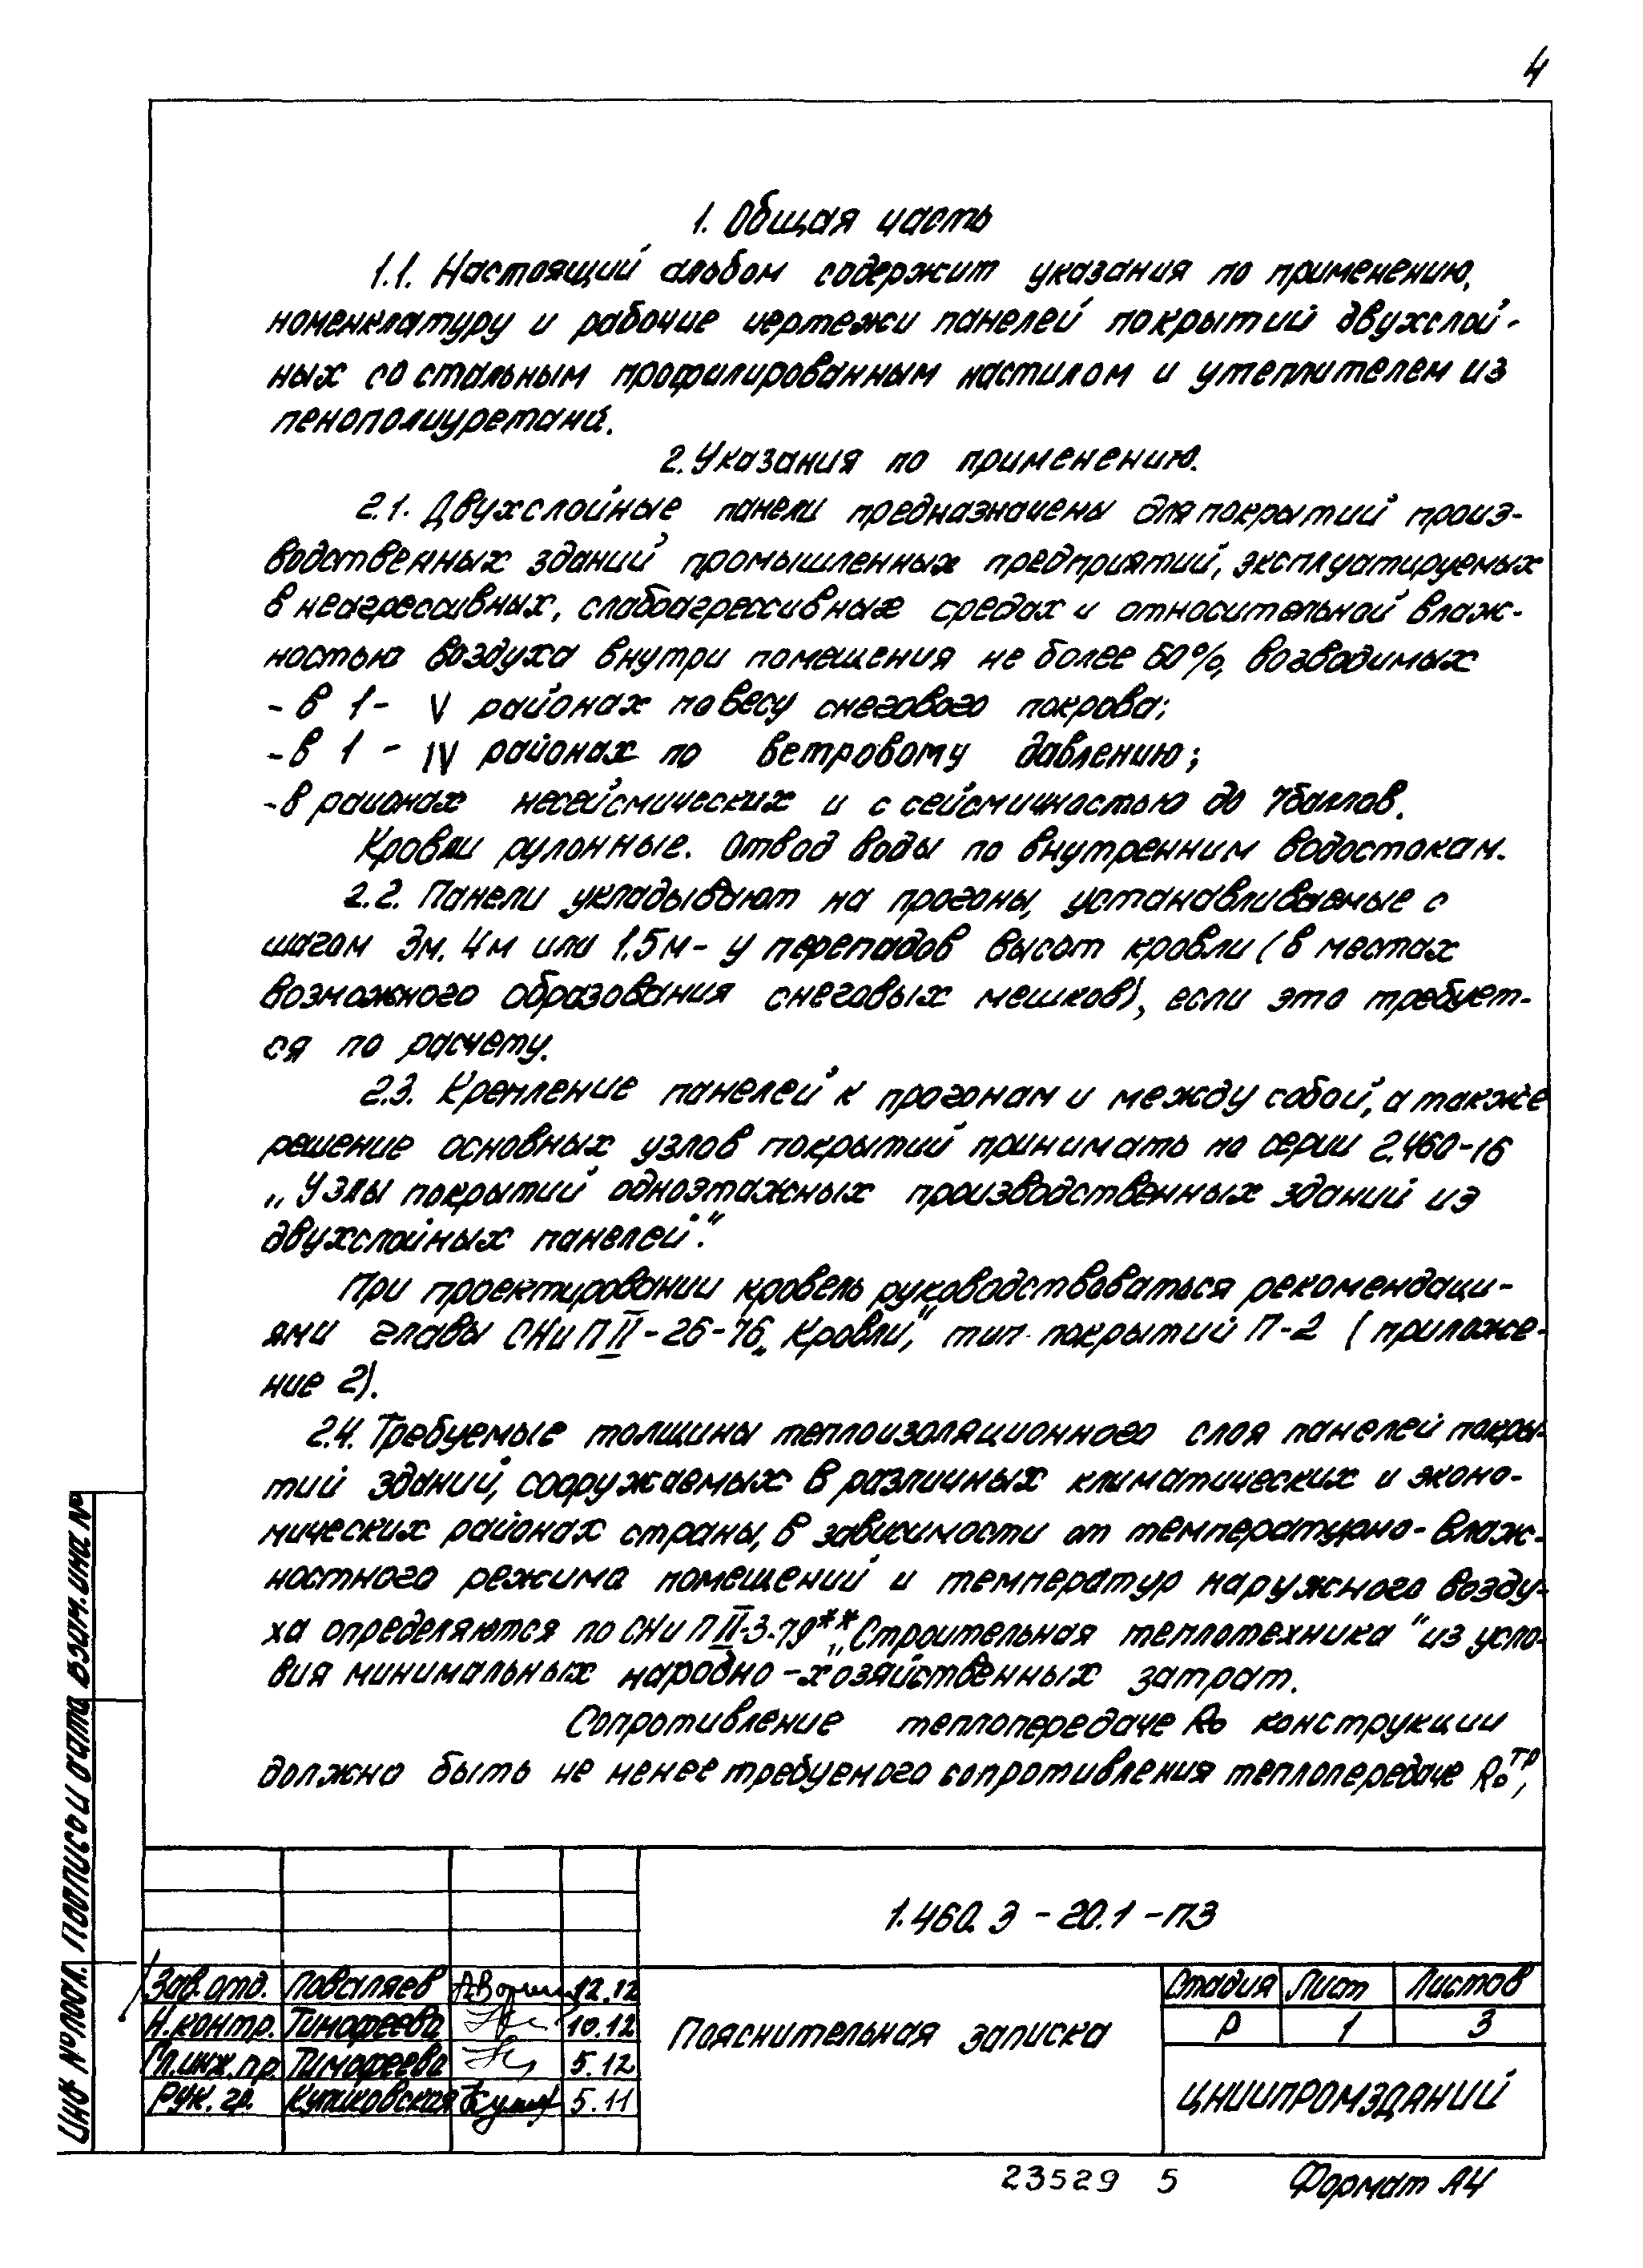 4
1. Общая часть
1.1. Настоящий альбом содержит указания по применению,
номенклатуру и рабочие чертежи панелей покрытий двухслой-
ных со стальным профилированным настилом и утеплителем из
пенополиуретана.
2. Указания по применению.
2.1. Двухслойные панели предназначены для покрытий произ-
водственных зданий промышленных предприятий, эксплуатируемых
в неагрессивных, слабоагрессивных средах и относительной влаж-
ностью воздуха внутри помещения не более 60%, возводимых
- в 1 - V районах по весу снегового покрова;
- в 1 - IV районах по ветровому давлению;
- в районах несейсмических и с сейсмичностью до 7 баллов.
Кровли рулонные. Отвод воды по внутренним водостокам.
2.2. Панели укладывают на прогоны, устанавливаемые с
шагом 3м. 4м или 1.5м - у перепадов высот кровли (в местах
возможного образования снеговых мешков), если это требует-
ся по расчету.
2.3. Крепление панелей к прогонам и между собой, а также
решение основных узлов покрытий принимать по серии 2.460-16
„Узлы покрытий одноэтажных производственных зданий из
двухслойных панелей".
При проектировании кровель руководствоваться рекомендаци-
ями главы СНиП II-26-76 „Кровли", тип покрытий П-2 (приложе-
ние 2).
2.4. Требуемые толщины теплоизоляционного слоя панелей покры-
тий зданий, сооружаемых в различных климатических и эконо-
мических районах страны, в зависимости от температурно-влаж-
ностного режима помещений и температур наружного возду-
ха определяются по СНиП II-3-79** „Строительная теплотехника" из усло-
вия минимальных народно-хозяйственных затрат.
Сопротивление теплопередаче Ro конструкции
должно быть не менее требуемого сопротивления теплопередаче Ro тр,
1.460.3 - 20.1 - ПЗ
Зав. отд. Поваляев 12.12
Н.контр. Тимофеева 10.12
Гл.инж.пр. Тимофеева 5.12
Рук. гр. 5.11
Пояснительная записка
Стадия Лист Листов
Р 1 3
ЦНИИПРОМЗДАНИЙ
23529 5 Формат А4
Инв № подл. Подпись и дата Взам. инв №